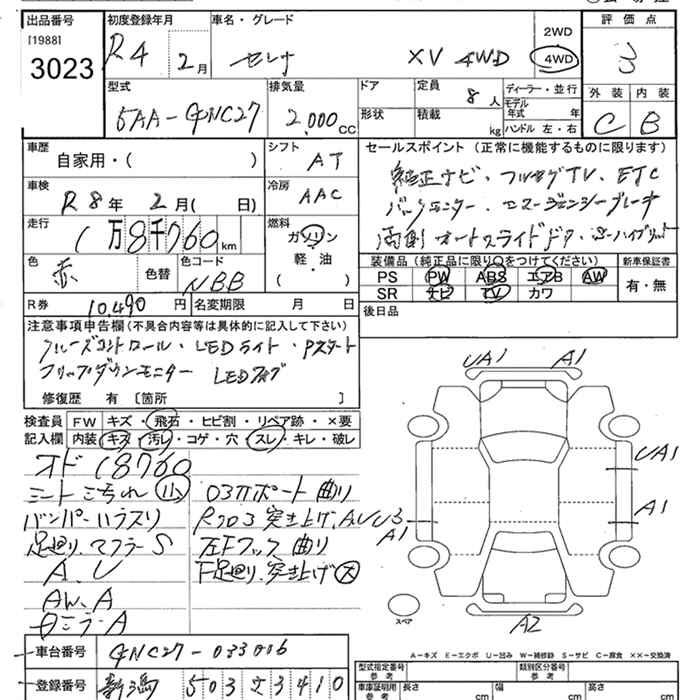 出品番号 初度登録年月 車名・グレード 2WD 評価点
[1988] 3023 R4年 2月 セレナ XV 4WD 4WD 3
型式 排気量 ドア 定員 8人 ディーラー・並行 外装 内装
5AA-GNC27 2,000cc 形状 積載 kg モデル年式 年 ハンドル 左・右 C B
車歴 シフト セールスポイント (正常に機能するものに限ります)
自家用・( ) AT 純正ナビ・フルセグTV、ETC
車検 冷房 バックモニター・エマージェンシーブレーキ
R8年2月( 日) AAC 両側オートスライドドア・S-ハイブリッド
走行 燃料
1万8千760km ガソリン・軽・油・( )
色 色替 色コード 装備品 (純正品に限り○をつけてください) 新車保証書
赤 NBB PS PW ABS エアB AW 有・無
SR ナビ TV カワ
R券 10,490円 名変期限 月 日 後日品
注意事項申告欄 (不具合内容等は具体的に記入して下さい)
クルーズコントロール・LEDライト・Pスタート
フリップダウンモニター LEDフォグ
修復歴 有 [箇所 ]
検査員記入欄 FW キズ・飛石・ヒビ割・リペア跡・×要
内装 キズ・汚レ・コゲ・穴・スレ・キレ・破レ
オド 18760
シートこ汚れ(小) ロアサポート曲り
バンパーハラスリ Rフロア突き上げ、AUU3
足廻り、マフラーS 左Fフック曲り
A、U 下足廻り、突き上げ(大)
AW、A
ドミラーA
UA1 A1
UA1
A1
A1
A2
スペア
A-キズ E-エクボ U-凹み W-補修跡 S-サビ C-腐食 XX-交換済
車台番号 GNC27-033006
登録番号 新潟 503 ス 3410
型式指定番号 参考 類別区分番号 参考
車庫証明用 参考 長さ cm 幅 cm 高さ cm